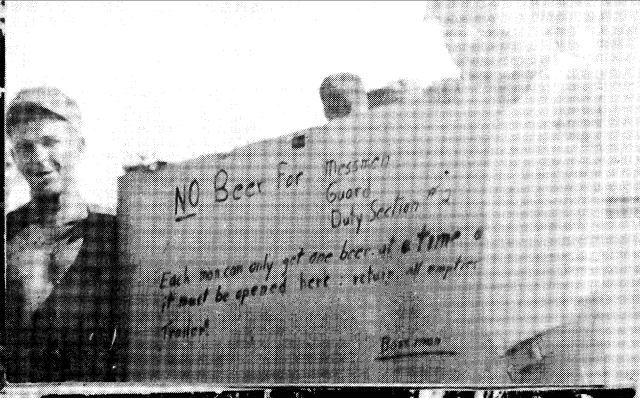 NO Beer For Messmen
Guard
Duty Section #2
Each man can only get one beer at a time
it must be opened here return all empties
Trailer!